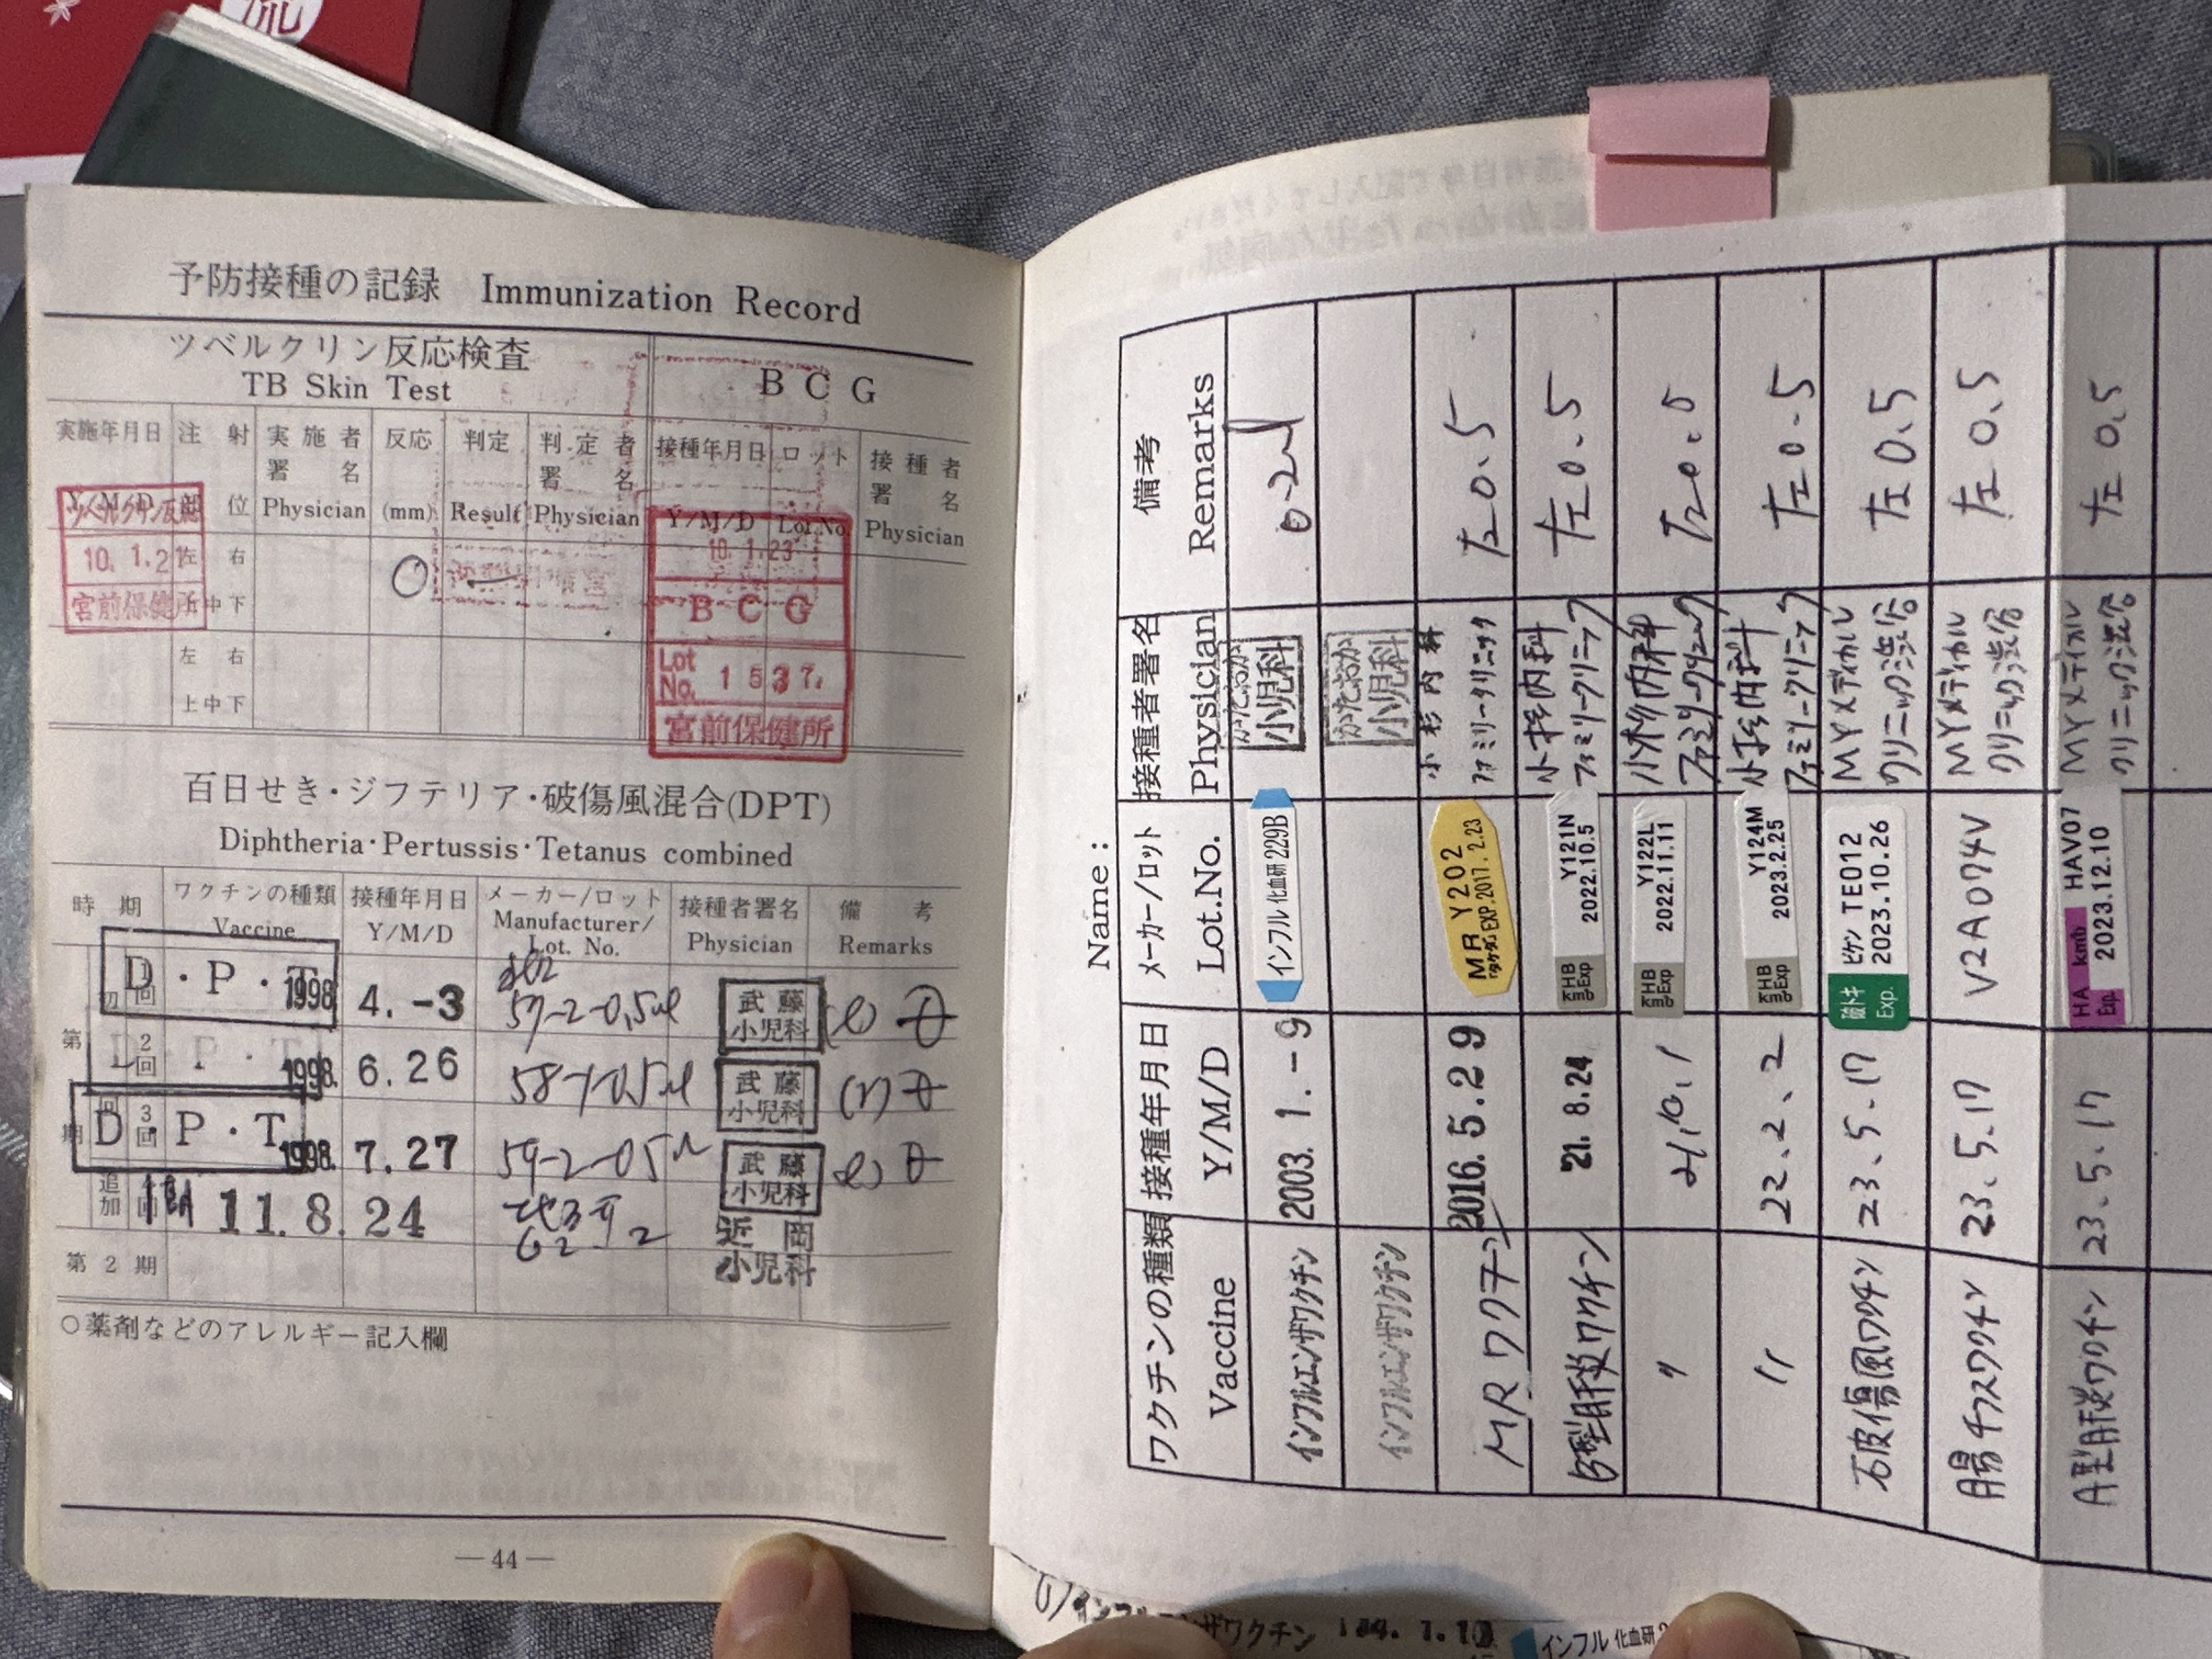 流
予防接種の記録 Immunization Record
ツベルクリン反応検査
TB Skin Test
B C G
実施年月日 注射部位 実施者署名 Physician 反応 (mm) 判定 Result 判定者署名 Physician 接種年月日 Y/M/D ロット Lot.No. 接種者署名 Physician
ツベルクリン反応
10. 1. 21
宮前保健所
左 右
上中下
左 右
上中下
10. 1. 23
B C G
Lot No. 1537.
宮前保健所
百日せき・ジフテリア・破傷風混合(DPT)
Diphtheria・Pertussis・Tetanus combined
時期 ワクチンの種類 Vaccine 接種年月日 Y/M/D メーカー/ロット Manufacturer/Lot. No. 接種者署名 Physician 備考 Remarks
第1期 初回 D・P・T 1998 4. -3 57-2-0.5ml 武藤小児科
2回 D・P・T 1998. 6. 26 武藤小児科
3回 D・P・T 1998. 7. 27 59-2-0.5 武藤小児科
追加 11. 8. 24 小児科
第2期
○薬剤などのアレルギー記入欄
— 44 —
Name :
ワクチンの種類 Vaccine 接種年月日 Y/M/D メーカー/ロット Lot.No. 接種者署名 Physician 備考 Remarks
インフルエンザワクチン 2003. 1. -9 インフル 化血研 229B かたおか小児科 0.2ml
インフルエンザワクチン かたおか小児科
MRワクチン 2016. 5. 29 MR Y202 "タケダ" EXP.2017. 2.23 小杉内科ファミリークリニック 左0.5
B型肝炎ワクチン 21. 8.24 HB Exp Y121N 2022.10.5 小杉内科ファミリークリニック 左0.5
〃 21.10.1 HB Exp Y122L 2022.11.11 小杉内科ファミリークリニック 左0.5
〃 22.2.2 HB Exp Y124M 2023.2.25 小杉内科ファミリークリニック 左0.5
破傷風ワクチン 23.5.17 破トキ Exp. ビケン TE012 2023.10.26 MYメディカルクリニック渋谷 左0.5
腸チフスワクチン 23.5.17 V2A074V MYメディカルクリニック渋谷 左0.5
A型肝炎ワクチン 23.5.17 HA kmb Exp. HAV07 2023.12.10 MYメディカルクリニック渋谷 左0.5
インフルエンザワクチン インフル 化血研